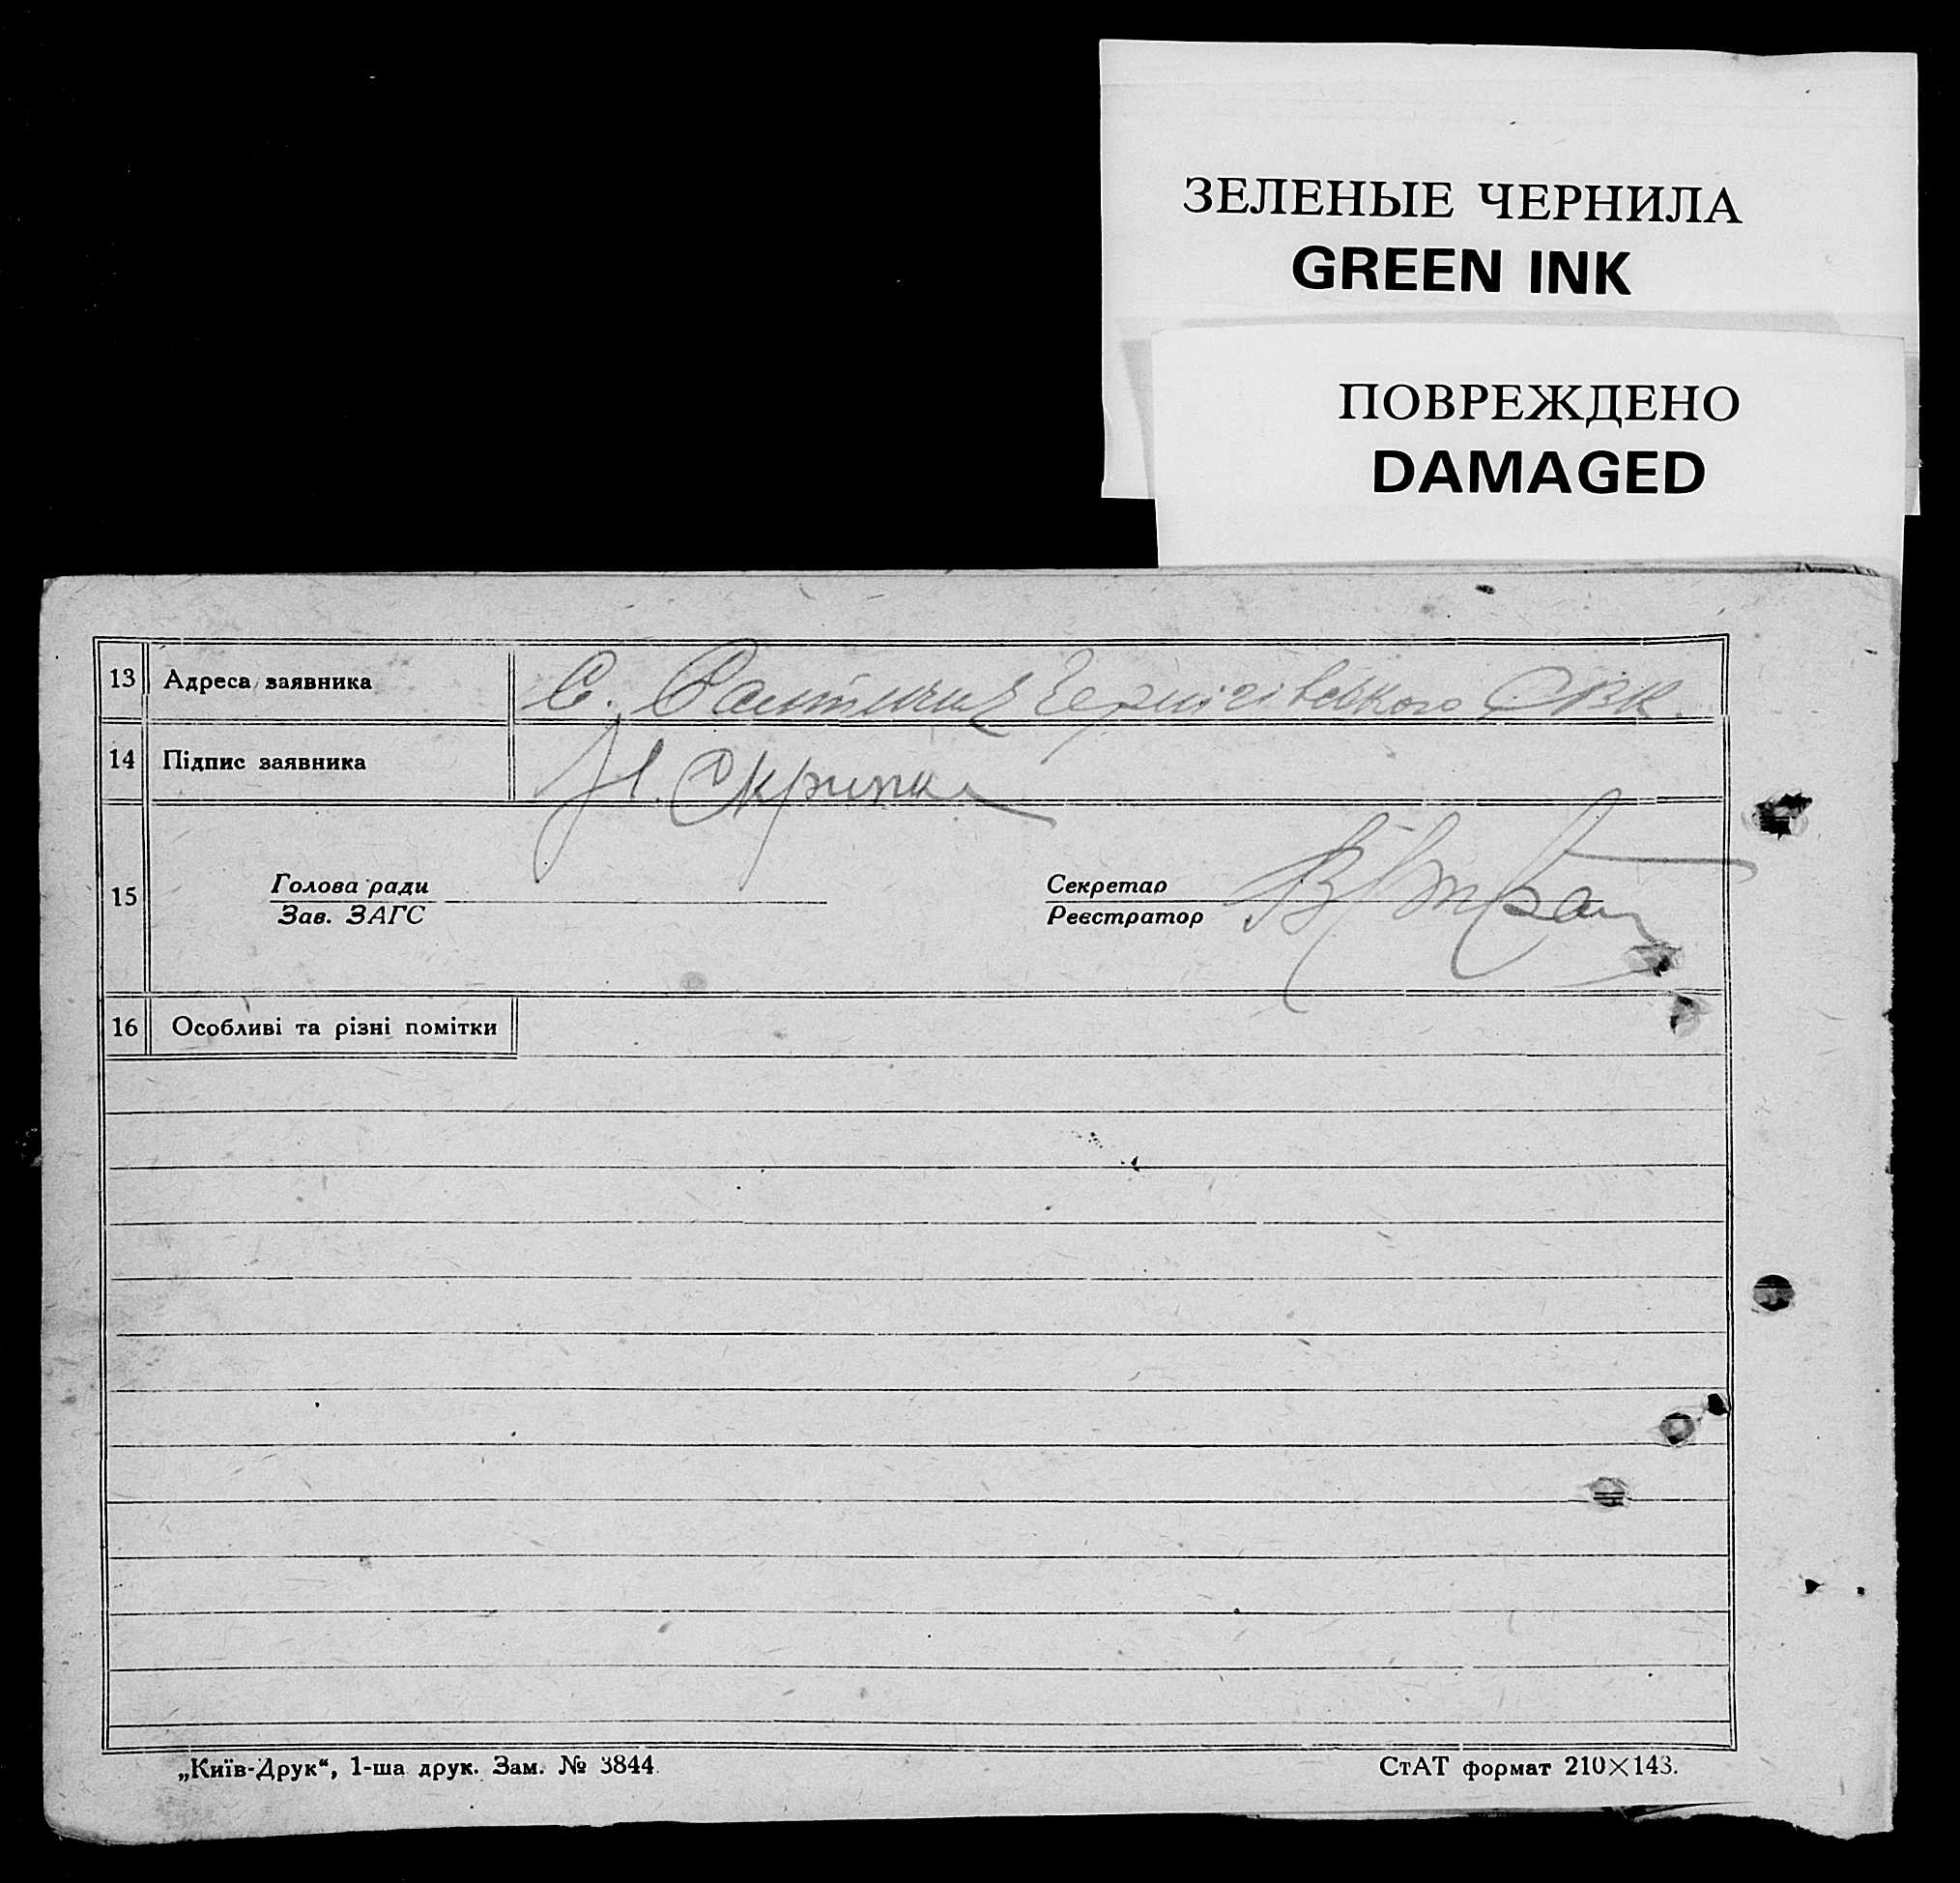 ЗЕЛЕНЫЕ ЧЕРНИЛА
GREEN INK
ПОВРЕЖДЕНО
DAMAGED
13 Адреса заявника С. Чернігівського
14 Підпис заявника Скрипка
15 Голова ради Секретар
Зав. ЗАГС Реєстратор
16 Особливі та різні помітки
„Київ-Друк“, 1-ша друк. Зам. № 3844 СтАТ формат 210×143.